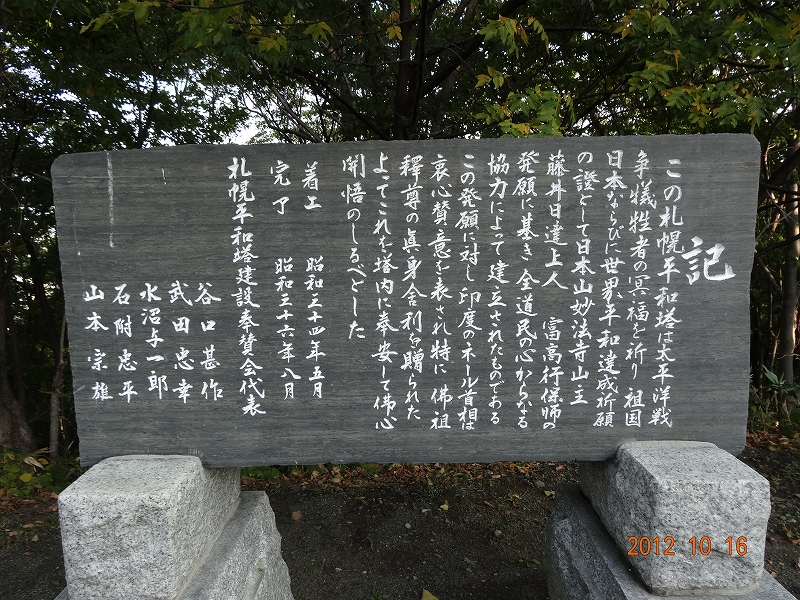 記
この札幌平和塔は太平洋戦
争犠牲者の冥福を祈り 祖国
日本ならびに世界平和達成祈願
の證として日本山妙法寺山主
藤井日達上人 富高行保師の
発願に基き 全道民の心からなる
協力によって建立されたものである
この発願に対し 印度のネール首相は
衷心賛意を表され 特に 佛祖
釋尊の眞身舎利を贈られた
よってこれを塔内に奉安して佛心
開悟のしるべとした
着工 昭和三十四年五月
完了 昭和三十六年八月
札幌平和塔建設奉賛会代表
谷口甚作
武田忠幸
水沼与一郎
石附忠平
山本宗雄
2012 10 16